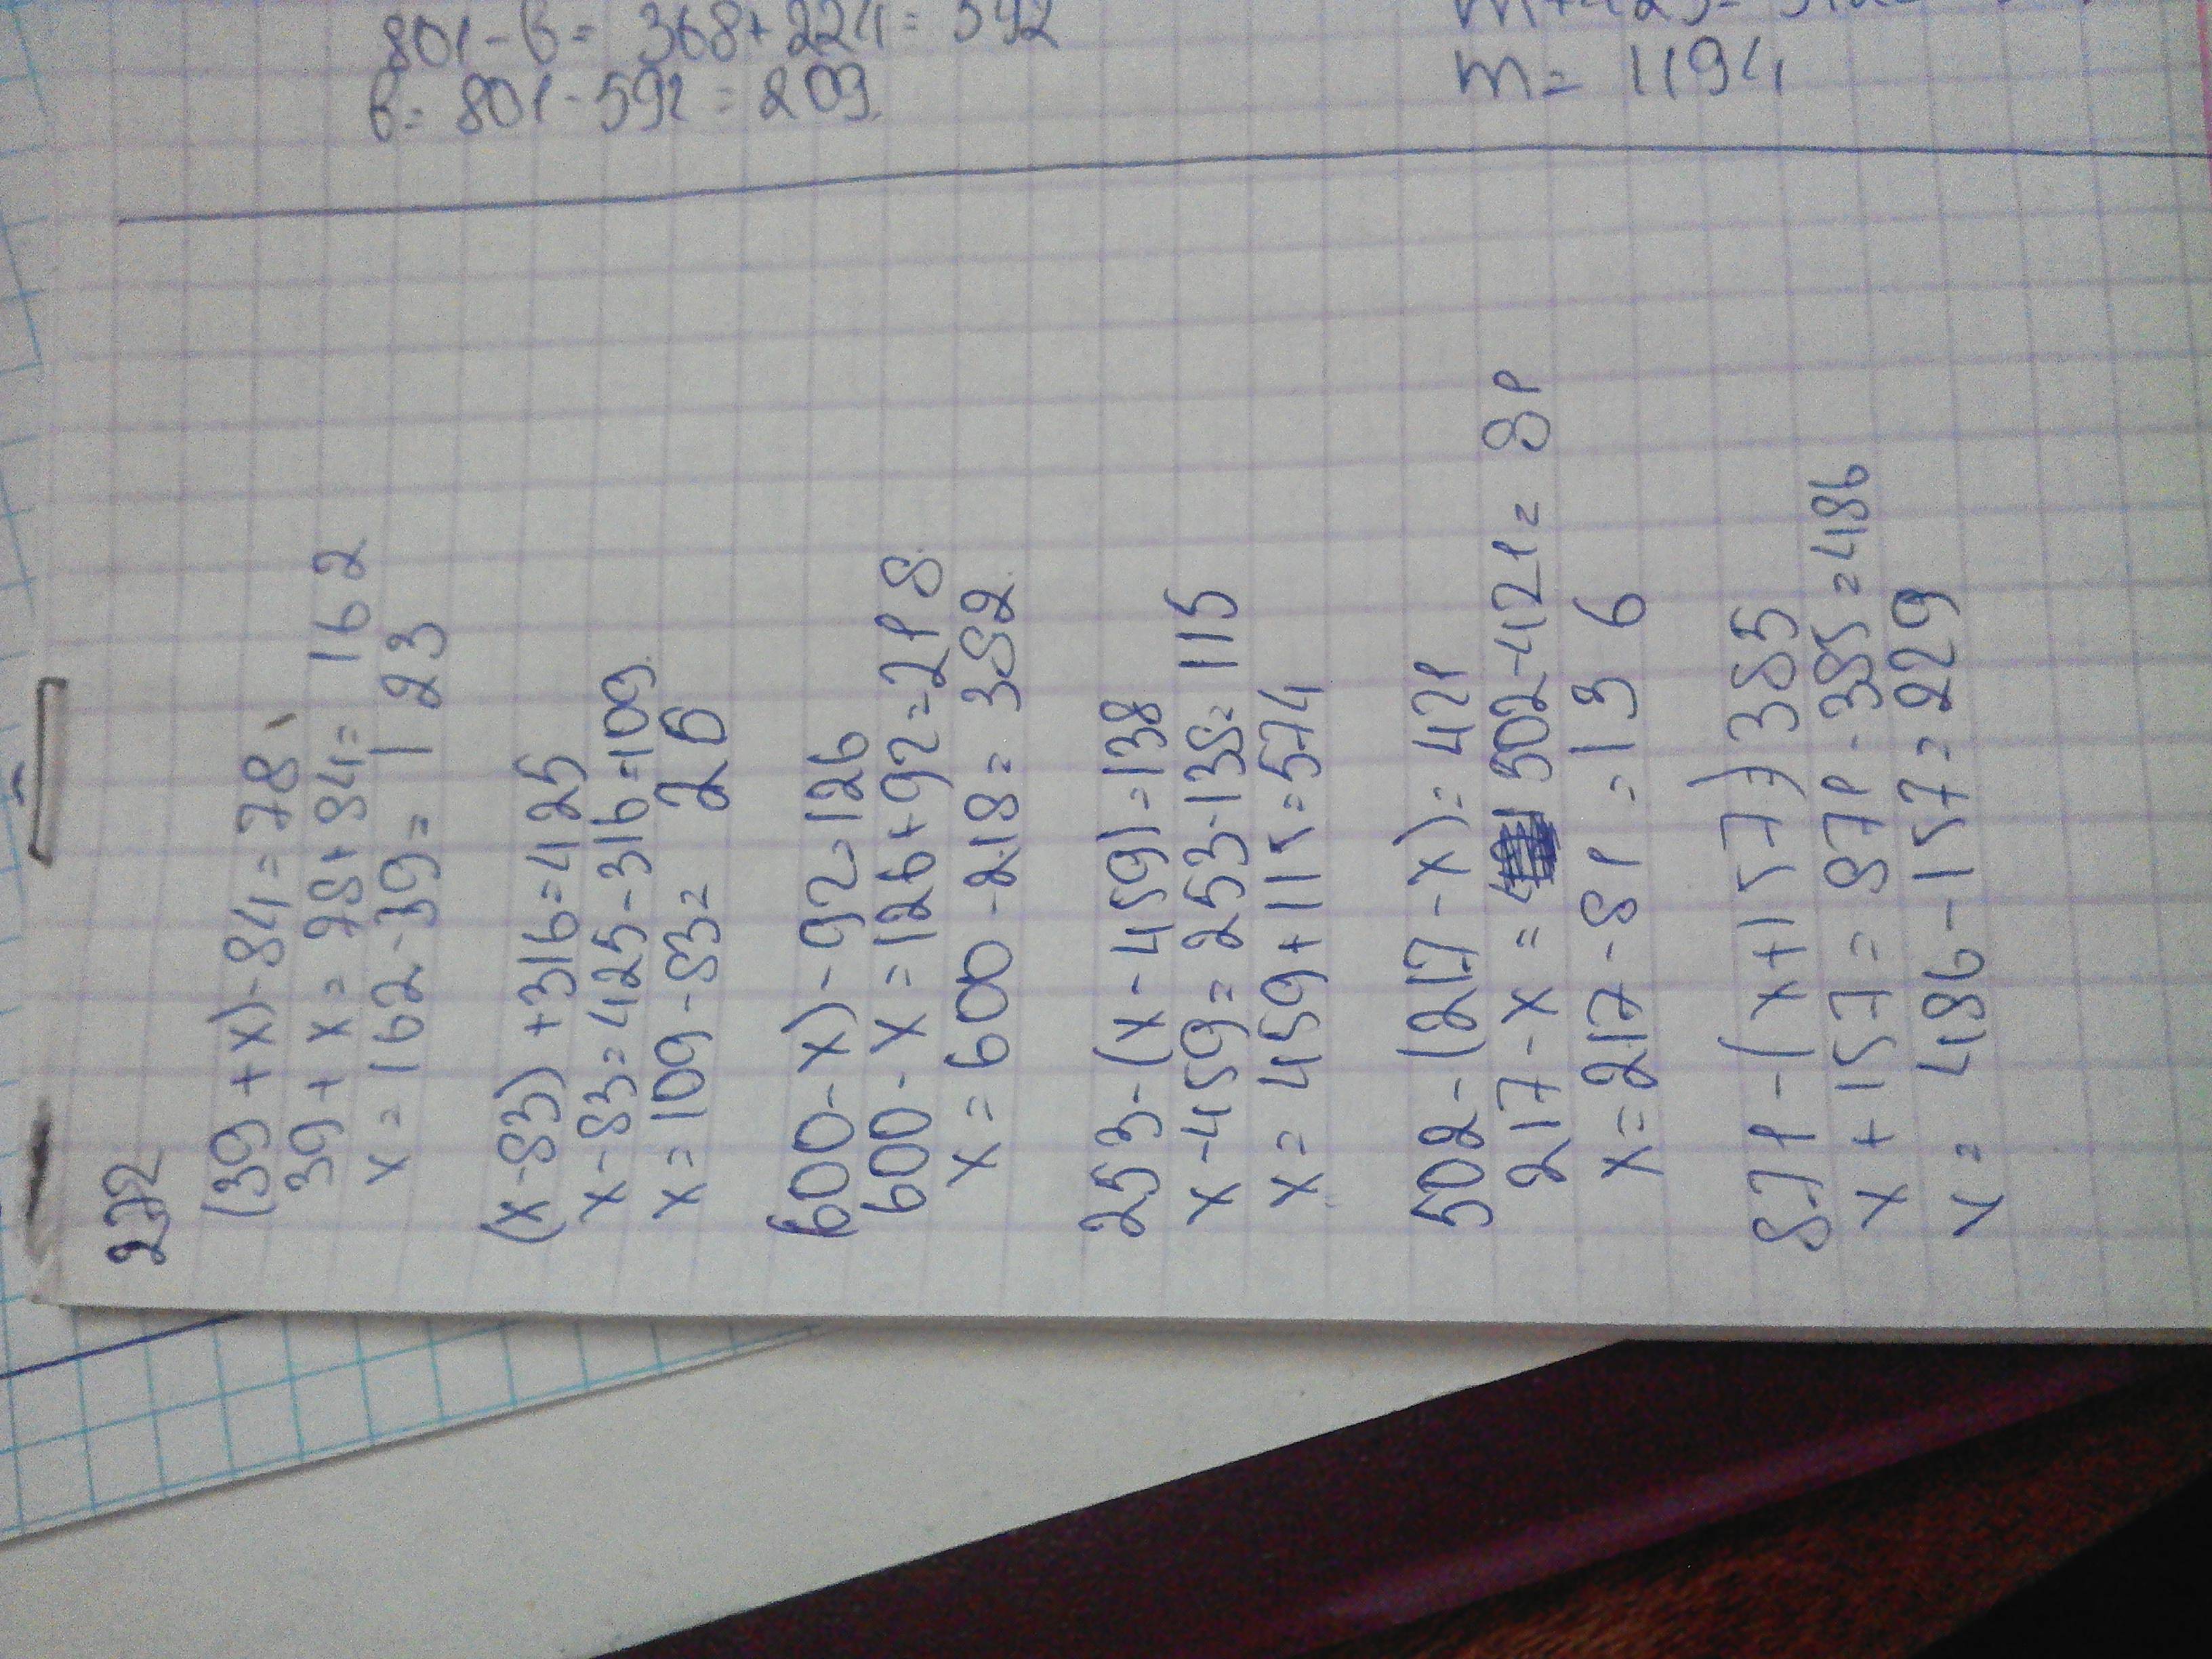 801-б= 368+224= 592
б= 801-592=209.
m= 1194
272
(39+x)-84=78
39+x=78+84=162
x=162-39=123
(x-83)+316=425
x-83=425-316=109.
x=109-83= 26
600-x)-92=126
600-x=126+92=218.
x=600-218=382.
253-(x-459)=138
x-459=253-138=115
x=459+115=574
502-(217-x)=421
217-x= 502-421=81
x=217-81=136
871-(x+157)385
x+157=871-385=486
x=486-157=229